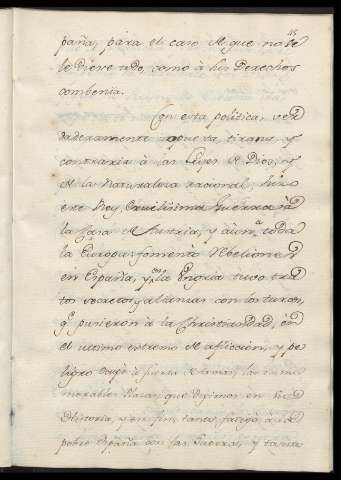 paña, para el caso de que no se
le diere todo, como à sus Derechos
combenia.
Con esta politica, ver
daderamente nueva, tirana, y
contraria à las Leyes de Dios, y
de la Naturaleza racional, hizo
este Rey, Cruelisima Guerra à
la Casa de Austria, y àun à toda
la Europa: fomentò Rebeliones
en España, y en la Ungria tuvo tra
tos secretos y alianzas con los turcos,
q.e pusieron à la Christiandad, en
el ultimo extremo de afliccion, y pe
ligro
que dejimos en su
Historia, y en fin, tanto fatigò à la
pobre España con las Guerras, y tanta